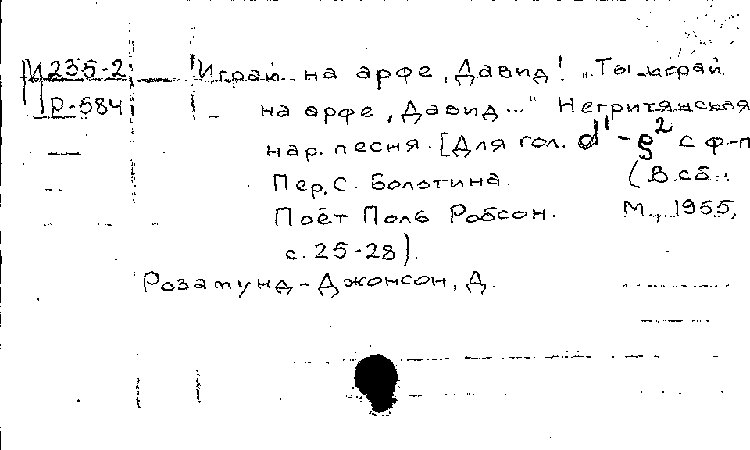 И 235-2 Играй на арфе, Давид! „Ты играй
Р-584 на арфе, Давид..." Негритянская
нар. песня. [Для гол. d¹-g² с ф-п
Пер. С. Болотина. (В сб.:
Поёт Поль Робсон. М., 1955,
с. 25-28).
Розамунд-Джонсон, Д.